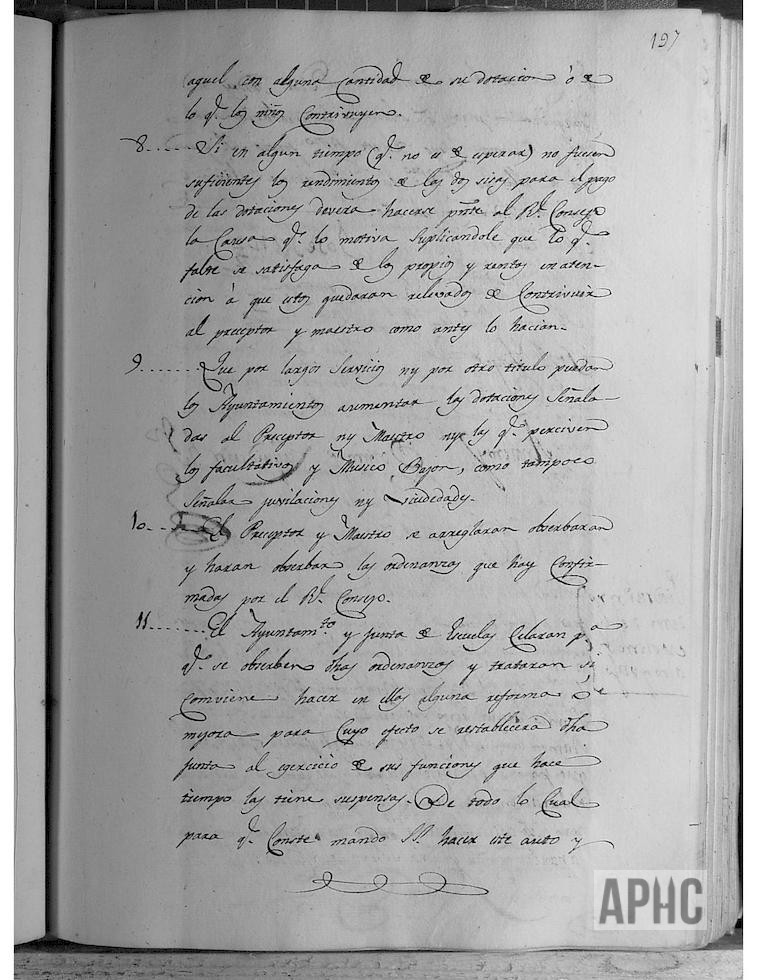 197
aquel con alguna Cantidad de su dotacion ò de
lo q.e los niños Contrivuyen.
8...... Si en algun tiempo (q.e no es de esperar) no fuesen
suficientes los rendimientos de las dos sisas para el pago
de las dotaciones devera hacerse pnte al R.l Consejo
la Causa q.e lo motiva suplicandole que lo q.e
falte se satisfaga de los propios y rentas en aten-
cion à que estos quedaran relevados de Contrivuir
al preceptor y maestro como antes lo hacian.
9....... Que por largos Servicios ny por otro titulo puedan
los Ayuntamientos aumentar las dotaciones Señala-
das al Preceptor ny Maestro ny las q.e perciven
los facultativos y Musico Bajon, como tampoco
Señalar juvilaciones ny viudedades.
10.... El Preceptor y Maestro se arreglaran obserbaran
y haran obserbar las ordenanzas que hay Confir-
madas por el R.l Consejo.
11....... El Ayuntam.to y junta de Escuelas Celaran p.a
q.e se obserben dhas ordenanzas y trataran si
Comviene hacer en ellas alguna reforma ò
mejora para Cuyo efecto se restablecerà dha
junta al egercicio de sus funciones que hace
tiempo las tiene suspensas. De todo lo Cual
para q.e Conste mando SS. hacer este auto y
APHC